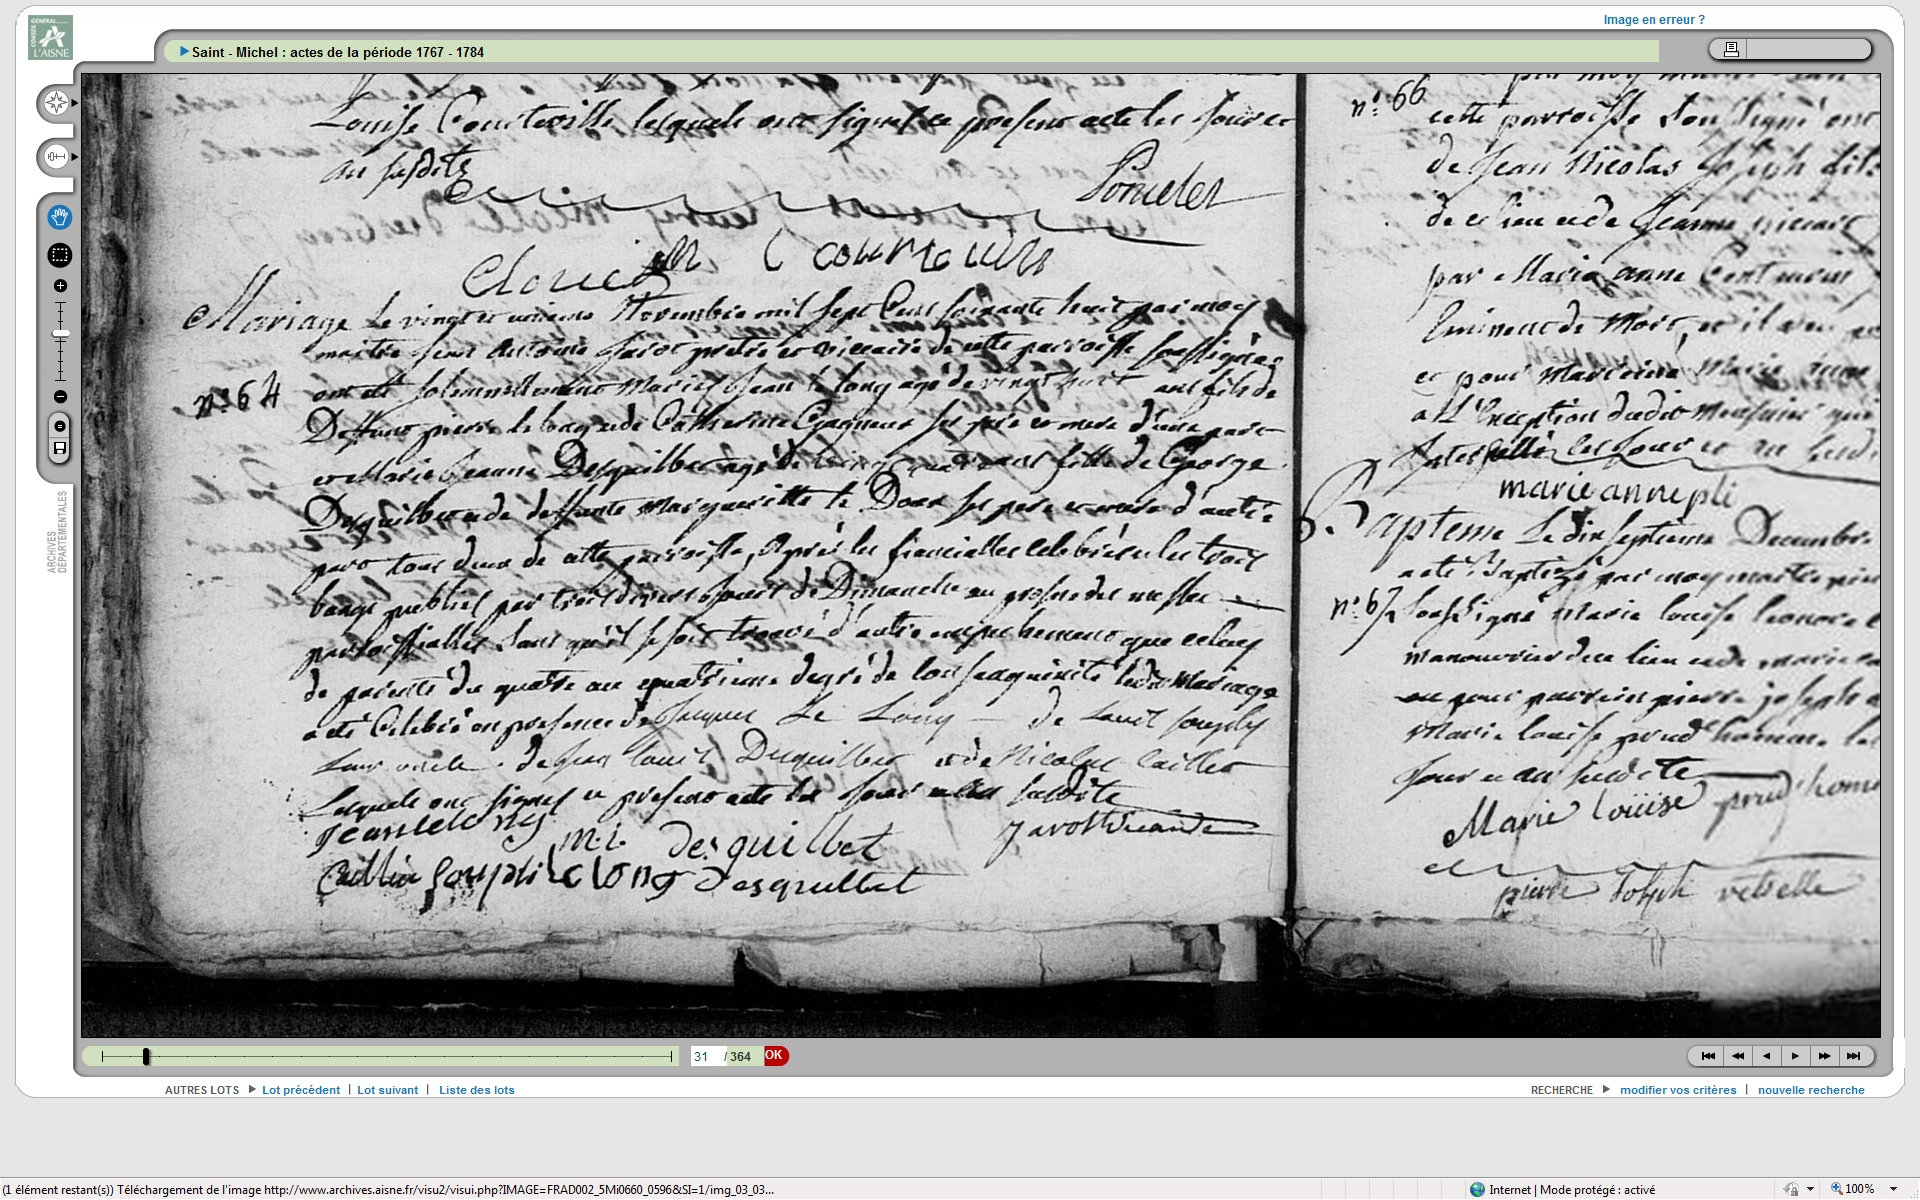 Image en erreur ?
GÉNÉRAL
CONSEIL
L'AISNE
Saint - Michel : actes de la période 1767 - 1784
ARCHIVES
DÉPARTEMENTALES
Louise Courteville lesquels ont signés ce present acte les jour et
an susdits
Poncelet
Clouet
Mariage Le vingt et unieme Novembre mil sept Cens soixante huit par moy
maitre jean Antoine Javot pretre et viccaire de cette parroisse soussignée
n° 64
ont été solemnellement Mariés Jean le long agé de vingt huit ans fils de
Deffunt pierre le long et de Catherine Gagneux ses pere et mere d'une part
et Marie Jeanne Desquilbet agé de ans fille de George
Desquilbet et de deffunte Margueritte le Doux ses pere et mere d'autre
part tous deux de cette parroisse, Après les fiancialles celebrées les trois
bangs publiés par trois divers jours de Dimanche au prosne des messes
parroissialles sans qu'il se soit trouvé d'autre empechement que celuy
de parenté du quatre au quatrieme degré de consanguinité ledit Mariage
a été Celebré en presence de Jacques Le Long de Louis souply
leur oncle de jean louis Desquilbet et de Nicolas Caillet
Lesquels ont signés ce present acte les jour et an susdits
jean le long m.j. desquilbet Javot vicaire
Caillet souplis le long desquilbet
n° 66
cette parroisse soussigné
de Jean Nicolas Joseph
de ce lieu et de Jeanne
par Marie anne
Eminent de Mort, et il a eu
et pour Marreine Marie anne
a L'Exception dudit
Interpellé les jour et an susdits
marie anne pli
Bapteme Le dix septieme Decembre
a été Baptizé par moy maitre
n° 67 soussigné Marie louise leonore
manouvrier de ce lieu et de marie
eu pour parrein pierre joseph
Marie louise prud'homme
jour et an susdits
Marie Loüise prud'homme
pierre Joseph
31 / 364 OK
AUTRES LOTS Lot précédent | Lot suivant | Liste des lots
RECHERCHE modifier vos critères | nouvelle recherche
(1 élément restant(s)) Téléchargement de l'image http://www.archives.aisne.fr/visu2/visui.php?IMAGE=FRAD002_5Mi0660_0596&SI=1/img_03_03...
Internet | Mode protégé : activé
100%